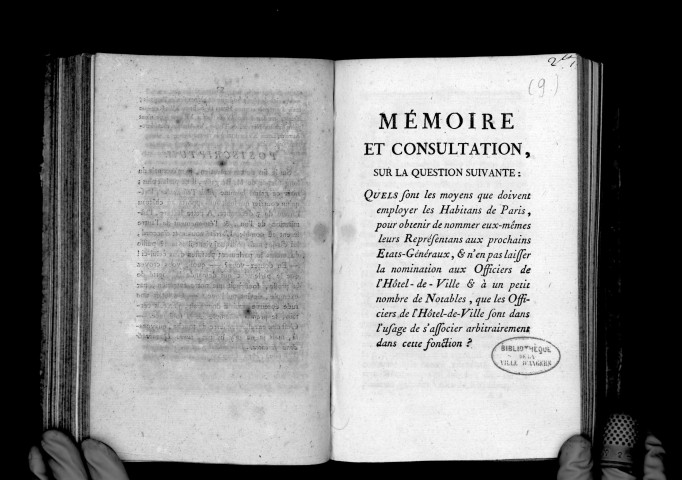 (9.)
MÉMOIRE
ET CONSULTATION,
SUR LA QUESTION SUIVANTE:
QUELS ſont les moyens que doivent
employer les Habitans de Paris,
pour obtenir de nommer eux-mêmes
leurs Repréſentans aux prochains
Etats-Généraux, & n'en pas laiſſer
la nomination aux Officiers de
l'Hôtel-de-Ville & à un petit
nombre de Notables, que les Offi-
ciers de l'Hôtel-de-Ville ſont dans
l'uſage de s'aſſocier arbitrairement
dans cette fonction?
BIBLIOTHÈQUE
DE LA
VILLE D'ANGERS